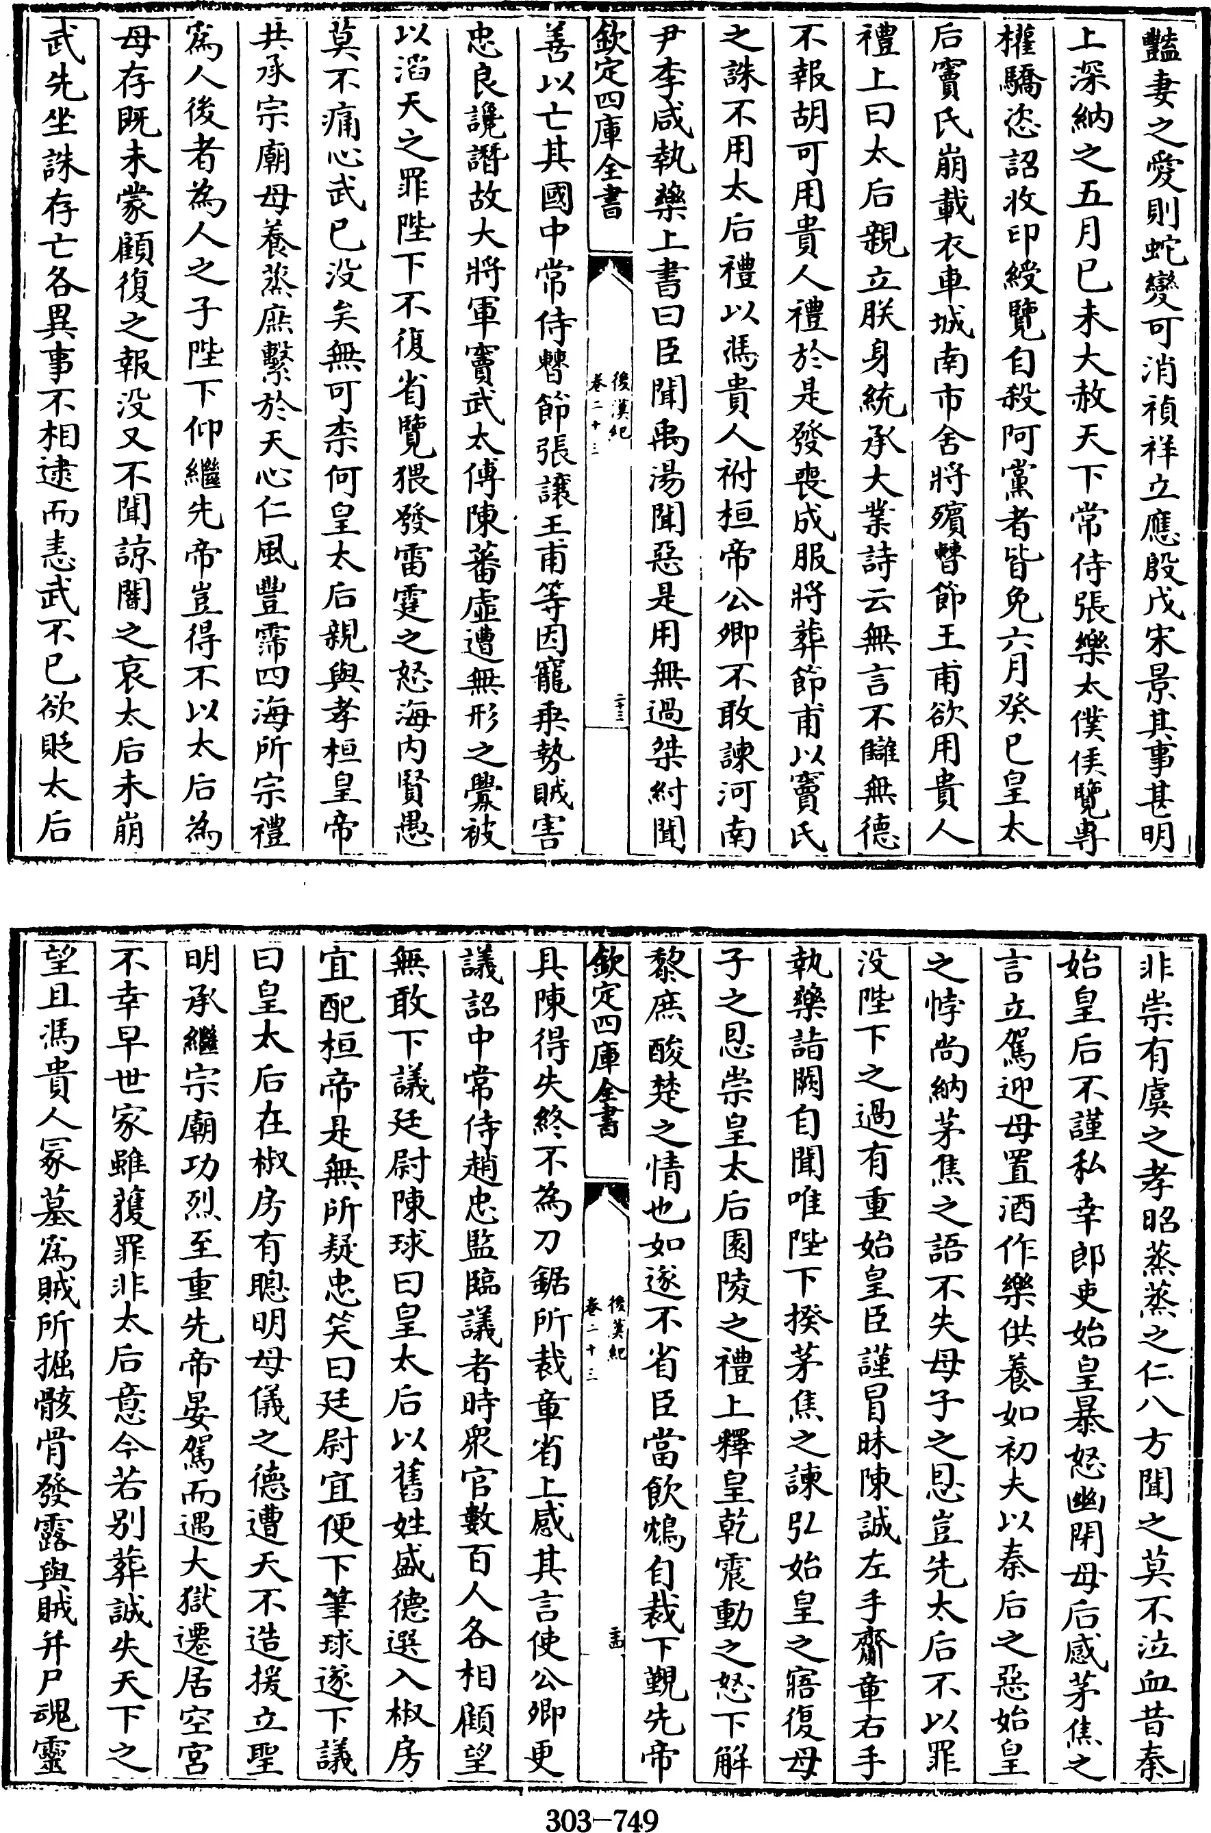 豔妻之愛則蛇變可消禎祥立應殷戊宋景其事甚明
上深納之五月己未大赦天下常侍張樂太僕侯覽專
權驕恣詔收印綬覽自殺阿黨者皆免六月癸巳皇太
后竇氏崩載衣車城南市舍將殯瞽節王甫欲用貴人
禮上曰太后親立朕身統承大業詩云無言不讎無德
不報胡可用貴人禮於是發喪成服將葬節甫以竇氏
之誅不用太后禮以馮貴人祔桓帝公卿不敢諫河南
尹李咸執藥上書曰臣聞禹湯聞惡是用無過桀紂聞
欽定四庫全書
後漢紀
卷二十三
二十三
善以亡其國中常侍瞽節張讓王甫等因寵乘勢賊害
忠良讒譖故大將軍竇武太傅陳蕃虛遭無形之釁被
以滔天之罪陛下不復省覽猥發雷霆之怒海内賢愚
莫不痛心武已没矣無可柰何皇太后親與孝桓皇帝
共承宗廟母養烝庶繫於天心仁風豐霈四海所宗禮
為人後者為人之子陛下仰繼先帝豈得不以太后為
母存既未蒙顧復之報没又不聞諒闇之哀太后未崩
武先坐誅存亡各異事不相逮而恚武不已欲貶太后
非崇有虞之孝昭蒸蒸之仁八方聞之莫不泣血昔秦
始皇后不謹私幸郎吏始皇暴怒幽閉母后感茅焦之
言立駕迎母置酒作樂供養如初夫以秦后之惡始皇
之悖尚納茅焦之語不失母子之恩豈先太后不以罪
没陛下之過有重始皇臣謹冒昧陳誠左手齎章右手
執藥詣闕自聞唯陛下揆茅焦之諫弘始皇之寤復母
子之恩崇皇太后園陵之禮上釋皇乾震動之怒下解
黎庶酸楚之情也如遂不省臣當飲鴆自裁下覲先帝
欽定四庫全書
後漢紀
卷二十三
二十四
具陳得失終不為刀鋸所裁章省上感其言使公卿更
議詔中常侍趙忠監臨議者時衆官數百人各相顧望
無敢下議廷尉陳球曰皇太后以舊姓盛德選入椒房
宜配桓帝是無所疑忠笑曰廷尉宜便下筆球遂下議
曰皇太后在椒房有聰明母儀之德遭天不造援立聖
明承繼宗廟功烈至重先帝晏駕而遇大獄遷居空宮
不幸早世家雖獲罪非太后意今若别葬誠失天下之
望且馮貴人冢墓為賊所掘骸骨發露與賊并尸魂靈
303-749